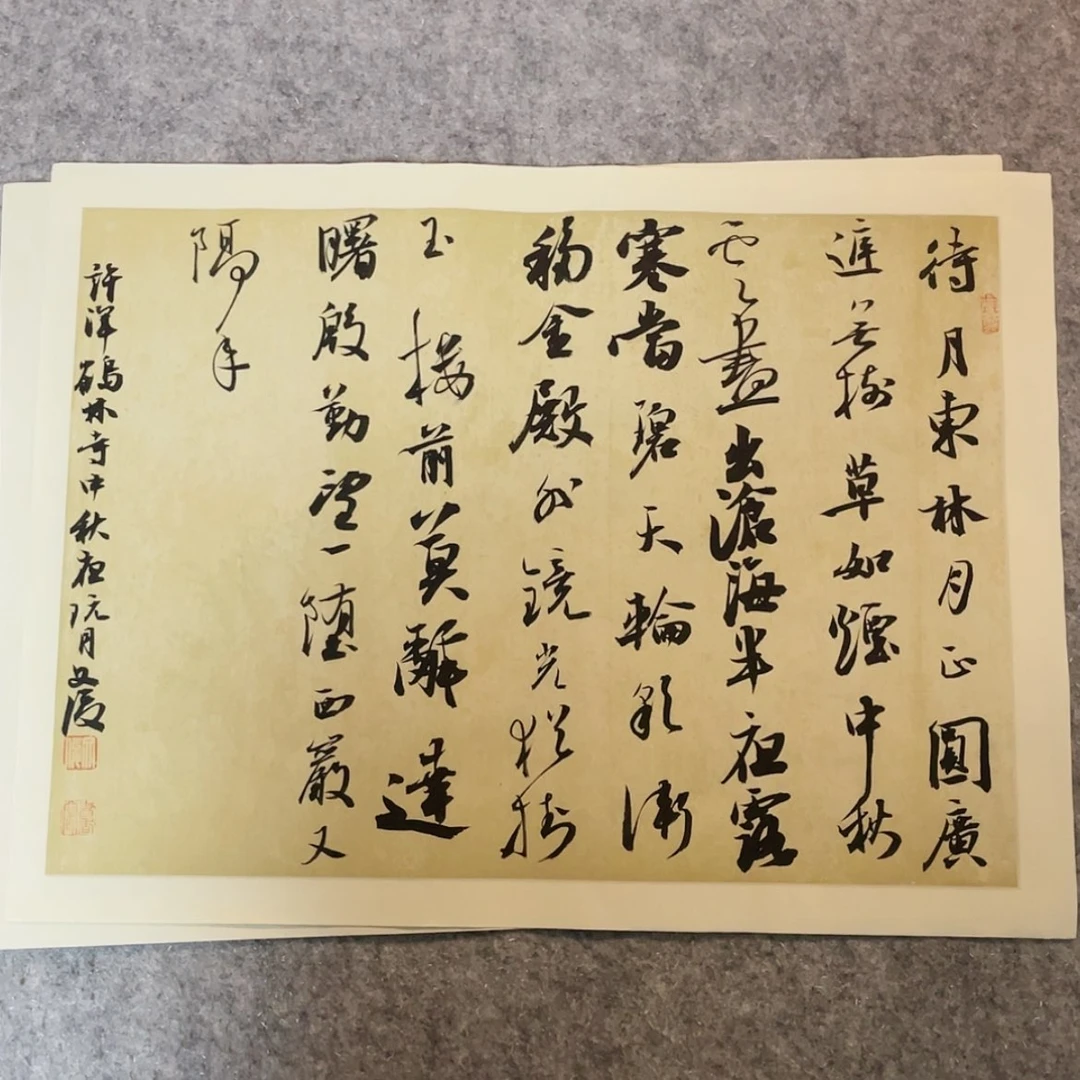 待月東林月正圓廣
庭無樹草如煙中秋
雲盡出滄海半夜露
寒當碧天輪彩漸
移金殿外鏡光猶掛
玉樓前莫辭達
曙殷勤望一墮西巖又
隔年
許渾鶴林寺中秋夜玩月